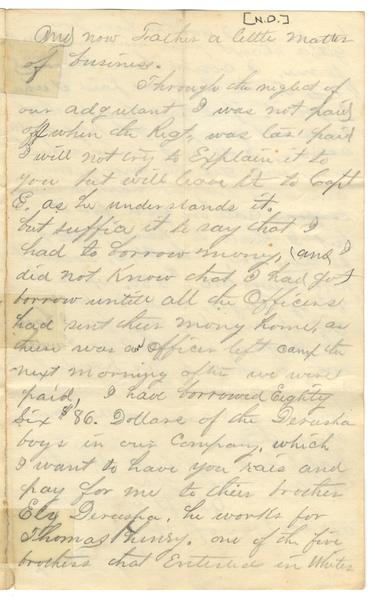 [N.D.]
And now Father a little matter
of business.
Through the neglect of
our adjutant I was not paid
off when the Regt, was last paid
I will not try to Explain it to
you but will leave it to Capt
E. as he understands it.
but suffice it to say that I
had to borrow money, (and I
did not Know that I had got
borrow untill all the Officers
had sent their money home, as
there was an Officer left camp the
next morning after we were
paid, I have borrowed Eighty
Six $86. Dollars of the Deruska
boys in our Company, which
I want to have you rais and
pay for me to their brother
Ely Deruska. he works for
Thomas one of the five
brothers that Enlisted in